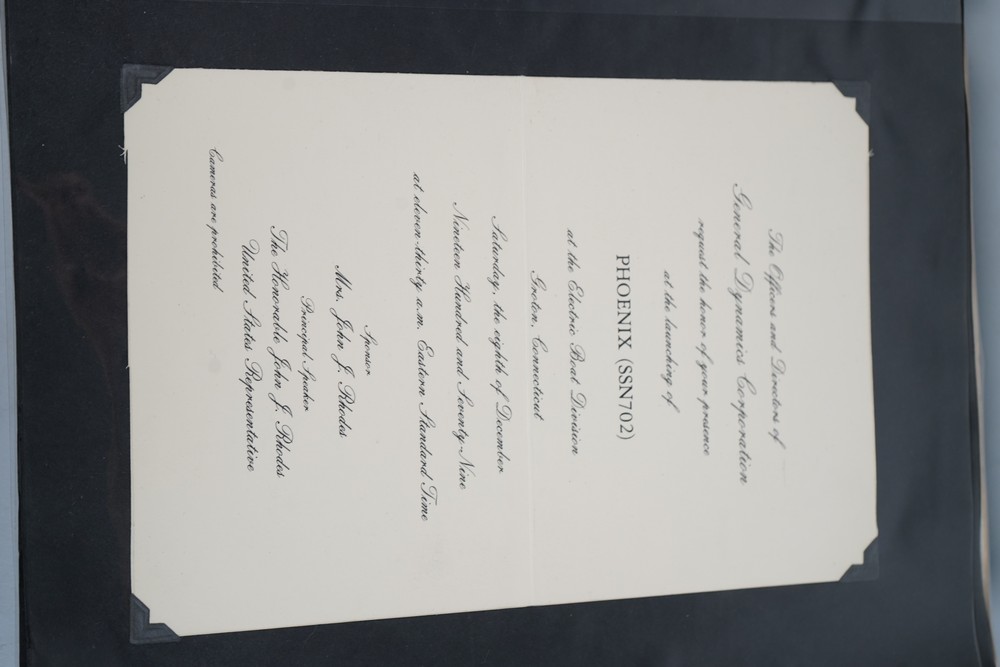 The Officers and Directors of
General Dynamics Corporation
request the honor of your presence
at the launching of
PHOENIX (SSN702)
at the Electric Boat Division
Groton, Connecticut
Saturday, the eighth of December
Nineteen Hundred and Seventy-Nine
at eleven-thirty a.m. Eastern Standard Time
Sponsor
Mrs. John J. Rhodes
Principal Speaker
The Honorable John J. Rhodes
United States Representative
Cameras are prohibited